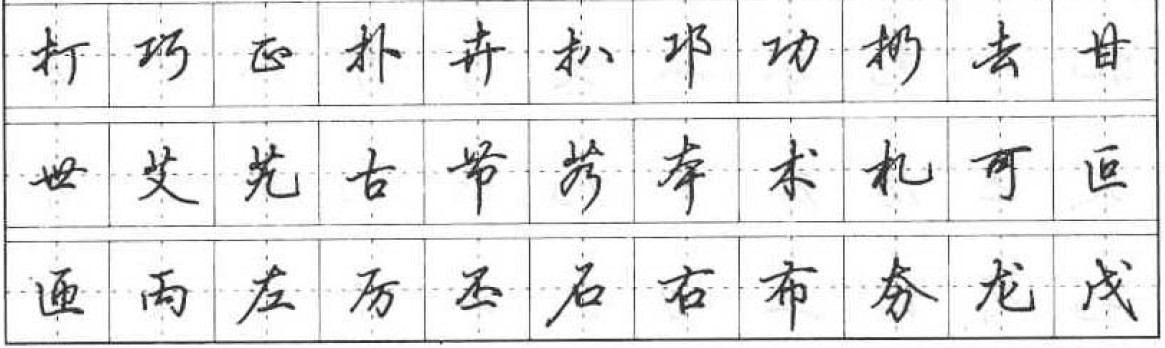 打巧正扑卉扒邛功扔去甘
世艾艽古节艿本术札可叵
匝丙左厉丕石右布夯龙戊